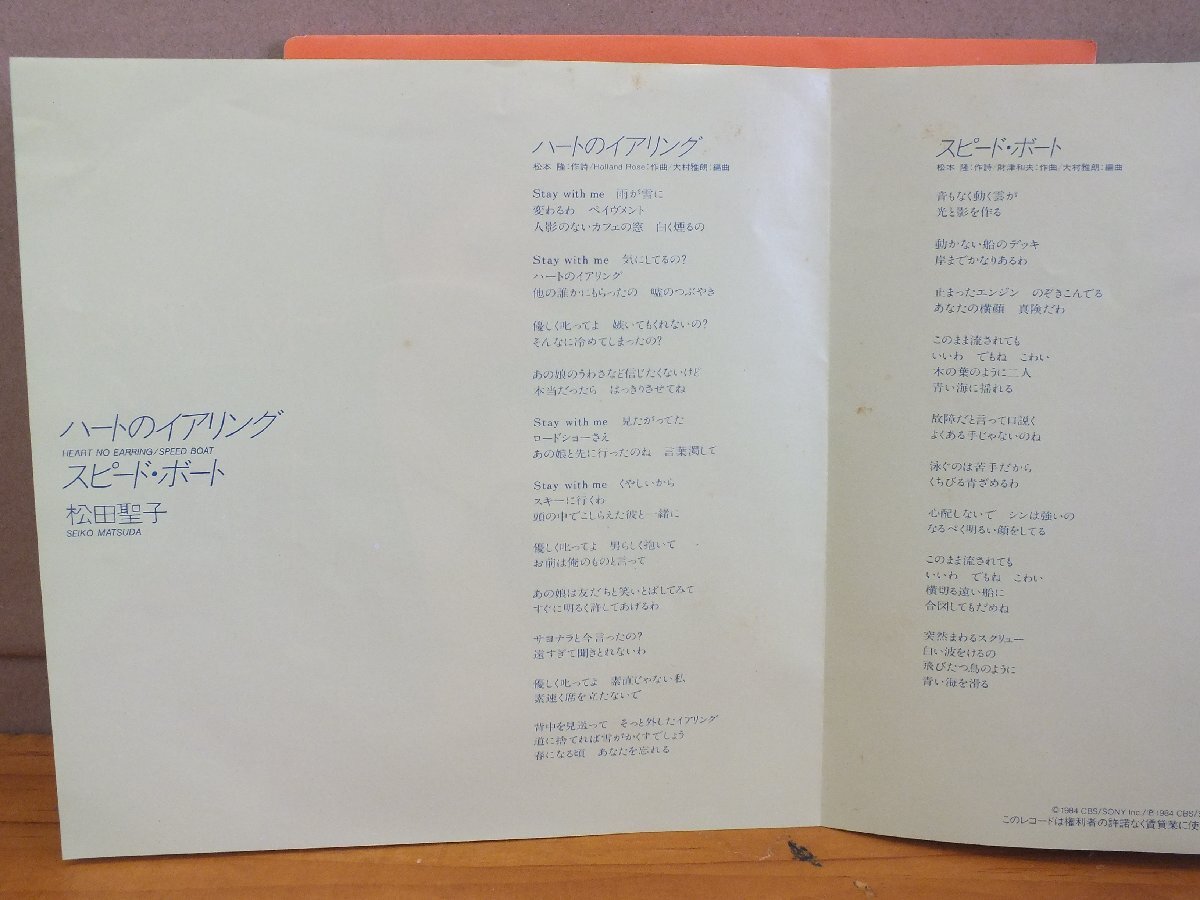 ハートのイアリング
HEART NO EARRING/SPEED BOAT
スピード・ボート
松田聖子
SEIKO MATSUDA
ハートのイアリング
松本 隆:作詩/Holland Rose:作曲/大村雅朗:編曲
Stay with me 雨が雪に
変わるわ ペイヴメント
人影のないカフェの窓 白く煙るの
Stay with me 気にしてるの?
ハートのイアリング
他の誰かにもらったの 嘘のつぶやき
優しく叱ってよ 妬いてもくれないの?
そんなに冷めてしまったの?
あの娘のうわさなど信じたくないけど
本当だったら はっきりさせてね
Stay with me 見たがってた
ロードショーさえ
あの娘と先に行ったのね 言葉濁して
Stay with me くやしいから
スキーに行くわ
頭の中でこしらえた彼と一緒に
優しく叱ってよ 男らしく抱いて
お前は俺のものと言って
あの娘は友だちと笑いとばしてみて
すぐに明るく許してあげるわ
サヨナラと今言ったの?
遠すぎて聞きとれないわ
優しく叱ってよ 素直じゃない私
素速く席を立たないで
背中を見送って そっと外したイアリング
道に捨てれば雪がかくすでしょう
春になる頃 あなたを忘れる
スピード・ボート
松本 隆:作詩/財津和夫:作曲/大村雅朗:編曲
音もなく動く雲が
光と影を作る
動かない船のデッキ
岸までかなりあるわ
止まったエンジン のぞきこんでる
あなたの横顔 真険だわ
このまま流されても
いいわ でもね こわい
木の葉のように二人
青い海に揺れる
故障だと言って口説く
よくある手じゃないのね
泳ぐのは苦手だから
くちびる青ざめるわ
心配しないで シンは強いの
なるべく明るい顔をしてる
このまま流されても
いいわ でもね こわい
横切る遠い船に
合図してもだめね
突然まわるスクリュー
白い波をけるの
飛びたつ鳥のように
青い海を滑る
©1984 CBS/SONY Inc./℗1984 CBS/S
このレコードは権利者の許諾なく賃貸業に使